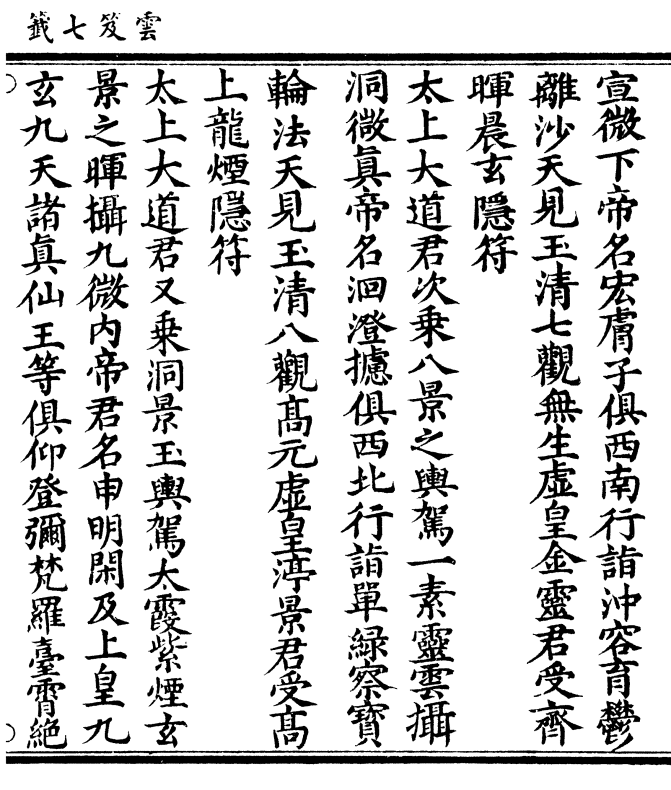 雲笈七籤
宣微下帝名宏膚子俱西南行詣沖容育鬱
離沙天見玉清七觀無生虛皇金靈君受齊
暉晨玄隱符
太上大道君次乗八景之輿駕一素靈雲攝
洞微真帝名洄澄攄俱西北行詣單緑察寶
輪法天見玉清八觀髙元虛皇渟景君受髙
上龍煙隱符
太上大道君又乗洞景玉輿駕太霞紫煙玄
景之暉攝九微內帝君名申明閑及上皇九
玄九天諸真仙王等俱仰登彌梵羅臺霄絶